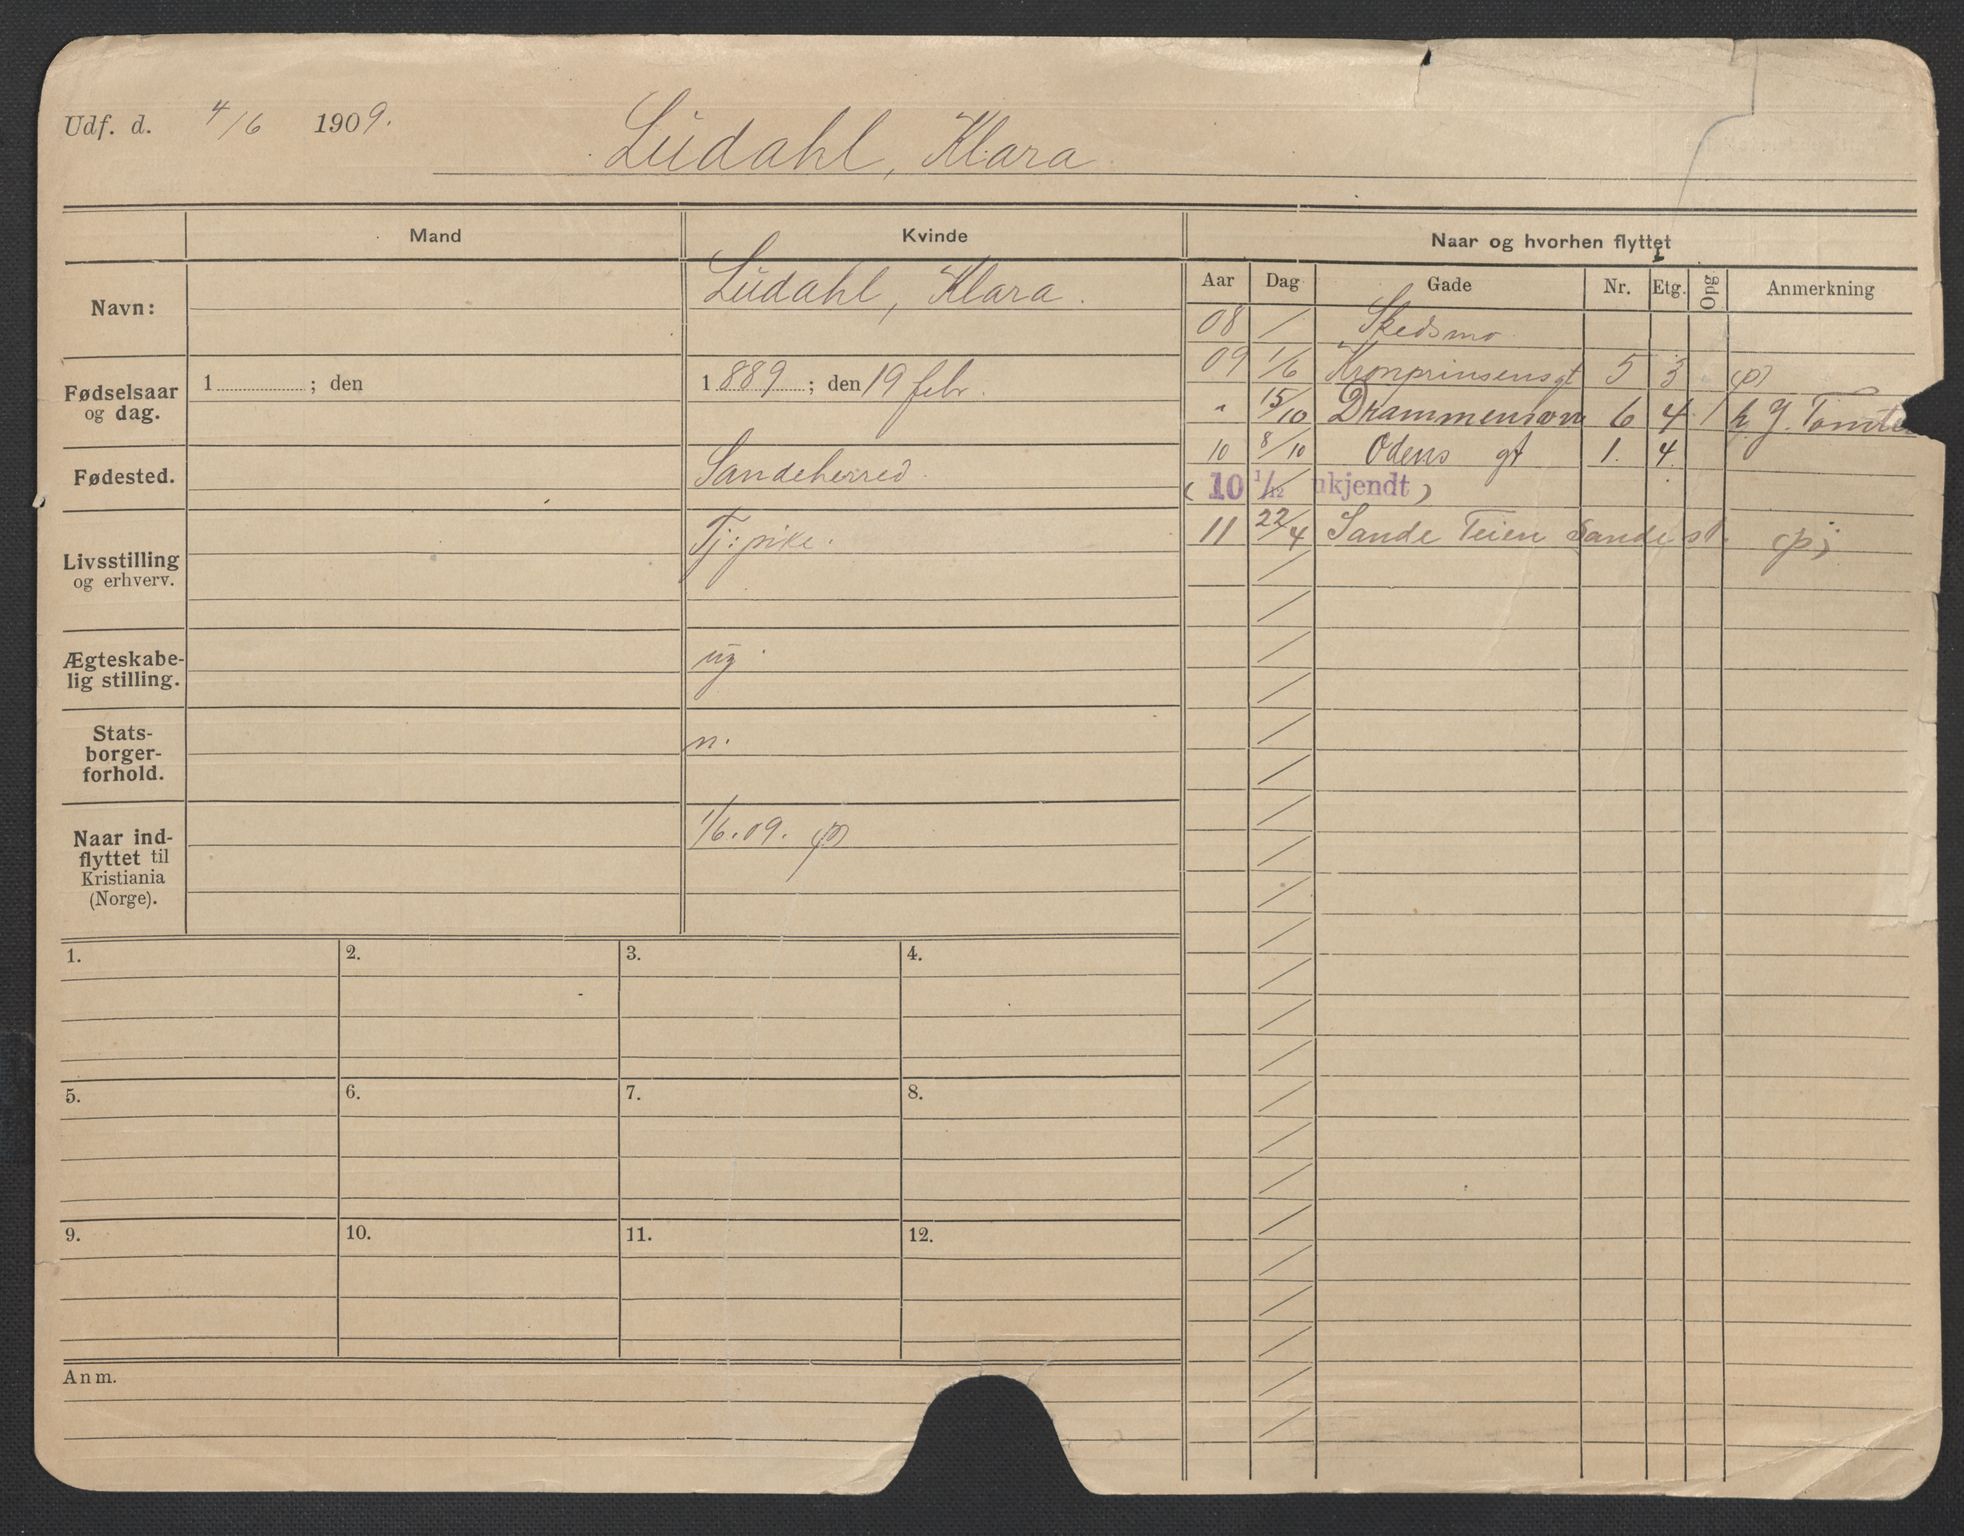 Udf. d. 4/6 1909.
Lüdahl, Klara
Mand
Kvinde
Navn:
Lüdahl, Klara.
Fødselsaar og dag.
1 ; den
1 889 ; den 19 febr.
Fødested.
Sandeherred.
Livsstilling og erhverv.
Tj: pike.
Ægteskabe-
lig stilling.
ug.
Stats-
borger-
forhold.
n.
Naar ind-
flyttet til
Kristiania
(Norge).
1/6. 09. (p)
1. 2. 3. 4.
5. 6. 7. 8.
9. 10. 11. 12.
Anm.
Naar og hvorhen flyttet
Aar Dag Gade Nr. Etg. Opg Anmerkning
08 / Skedsmo
09 1/6 Kronprinsensgt 5 3 (p)
" 15/10 Drammensvn 6 4 / h. J. Tomte
10 8/10 Odens gt 1. 4.
(10 1/12 ukjendt)
11 22/4 Sande Teien Sande st. (p)